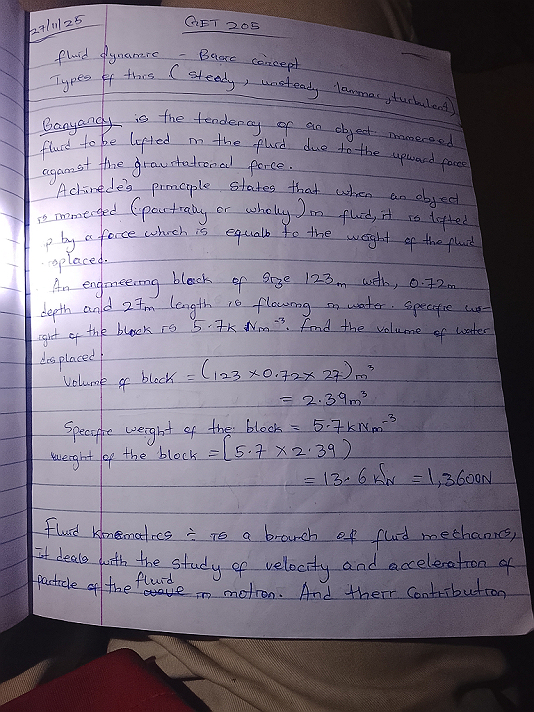 27/11/25
GET 205
fluid dynamic - Basic concept
Types of this ( steady, unsteady laminar, turbulent)
Banyancy is the tendency of an object immersed
fluid to be lifted in the fluid due to the upward force
against the gravitational force.
Achimede's principle states that when an object
is immersed (partially or wholly) in fluid, it is lifted
p by a force which is equals to the weight of the fluid
isplaced.
An engineering block of size 123m with, 0.72m
depth and 27m length is flowing in water. specific we-
ight of the block is 5.7k Nm⁻³. find the volume of water
displaced.
Volume of block = (123 x 0.72 x 27) m³
= 2.39m³
Specific weight of the block = 5.7kNm⁻³
weight of the block = [5.7 x 2.39)
= 13.6 kN = 1,3600N
Fluid kinematics ÷ is a branch of fluid mechanics,
it deals with the study of velocity and acceleration of
particle of the fluid in motion. And their contribution